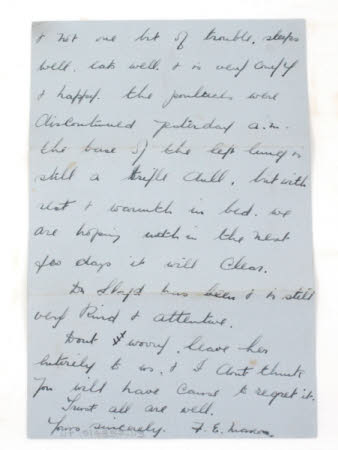 & not one bit of trouble, sleeps
well. eats well. & is very comfy
& happy. The poultices were
discontinued yesterday a.m.
the base of the left lung is
still a trifle dull, but with
rest & warmth in bed. we
are hoping within the next
few days it will clear.
Dr Lloyd has been & is still
very kind & attentive.
Dont worry. leave her
entirely to us, & I dont think
you will have cause to regret it.
Trust all are well.
Yours sincerely. F. E.